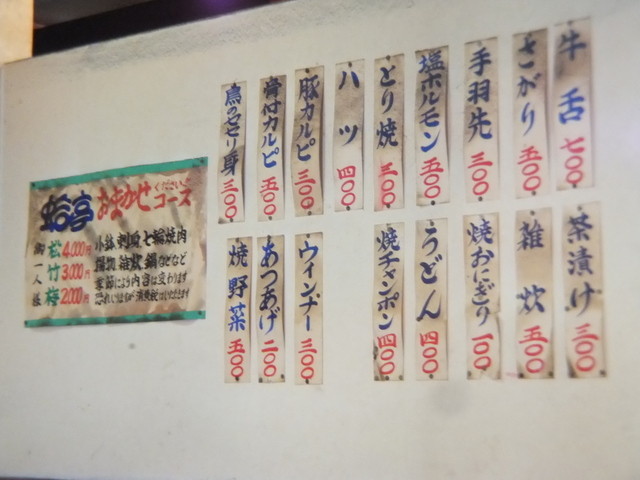 牛舌 七〇〇
さがり 五〇〇
手羽先 三〇〇
塩ホルモン 五〇〇
とり焼 三〇〇
ハツ 四〇〇
豚カルビ 三〇〇
骨付カルビ 五〇〇
鳥のセセリ身 三〇〇
茶漬け 三〇〇
雑炊 五〇〇
焼おにぎり 一〇〇
うどん 四〇〇
焼チャンポン 四〇〇
ウィンナー 三〇〇
あつあげ 二〇〇
焼野菜 五〇〇
おまかせコース
ください
御一人様
松 4,000円
竹 3,000円
梅 2,000円
小鉢 刺身 七輪焼肉
揚物 雑炊 鍋などなど
季節により内容は変わります